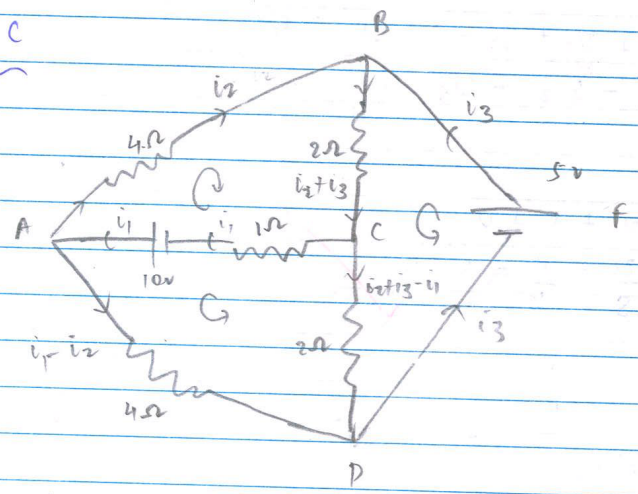 C
B
i2
i3
4Ω
2Ω
5v
i2+i3
F
A
i1
i1
1Ω
C
10v
i2+i3-i1
i3
i1-i2
2Ω
4Ω
D